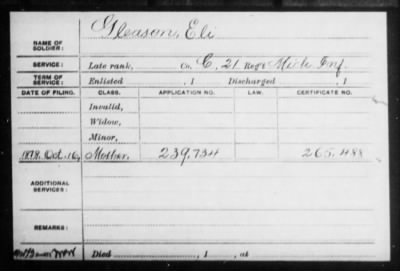 Gleason, Eli
NAME OF
SOLDIER:
SERVICE: Late rank, Co. C, 21 Reg't Mich Inf.
TERM OF
SERVICE: Enlisted , 1 Discharged , 1
DATE OF FILING. CLASS. APPLICATION NO. LAW. CERTIFICATE NO.
Invalid,
Widow,
Minor,
1878, Oct. 16, Mother, 239.734 265.488
ADDITIONAL
SERVICES:
REMARKS:
Died , 1 , at